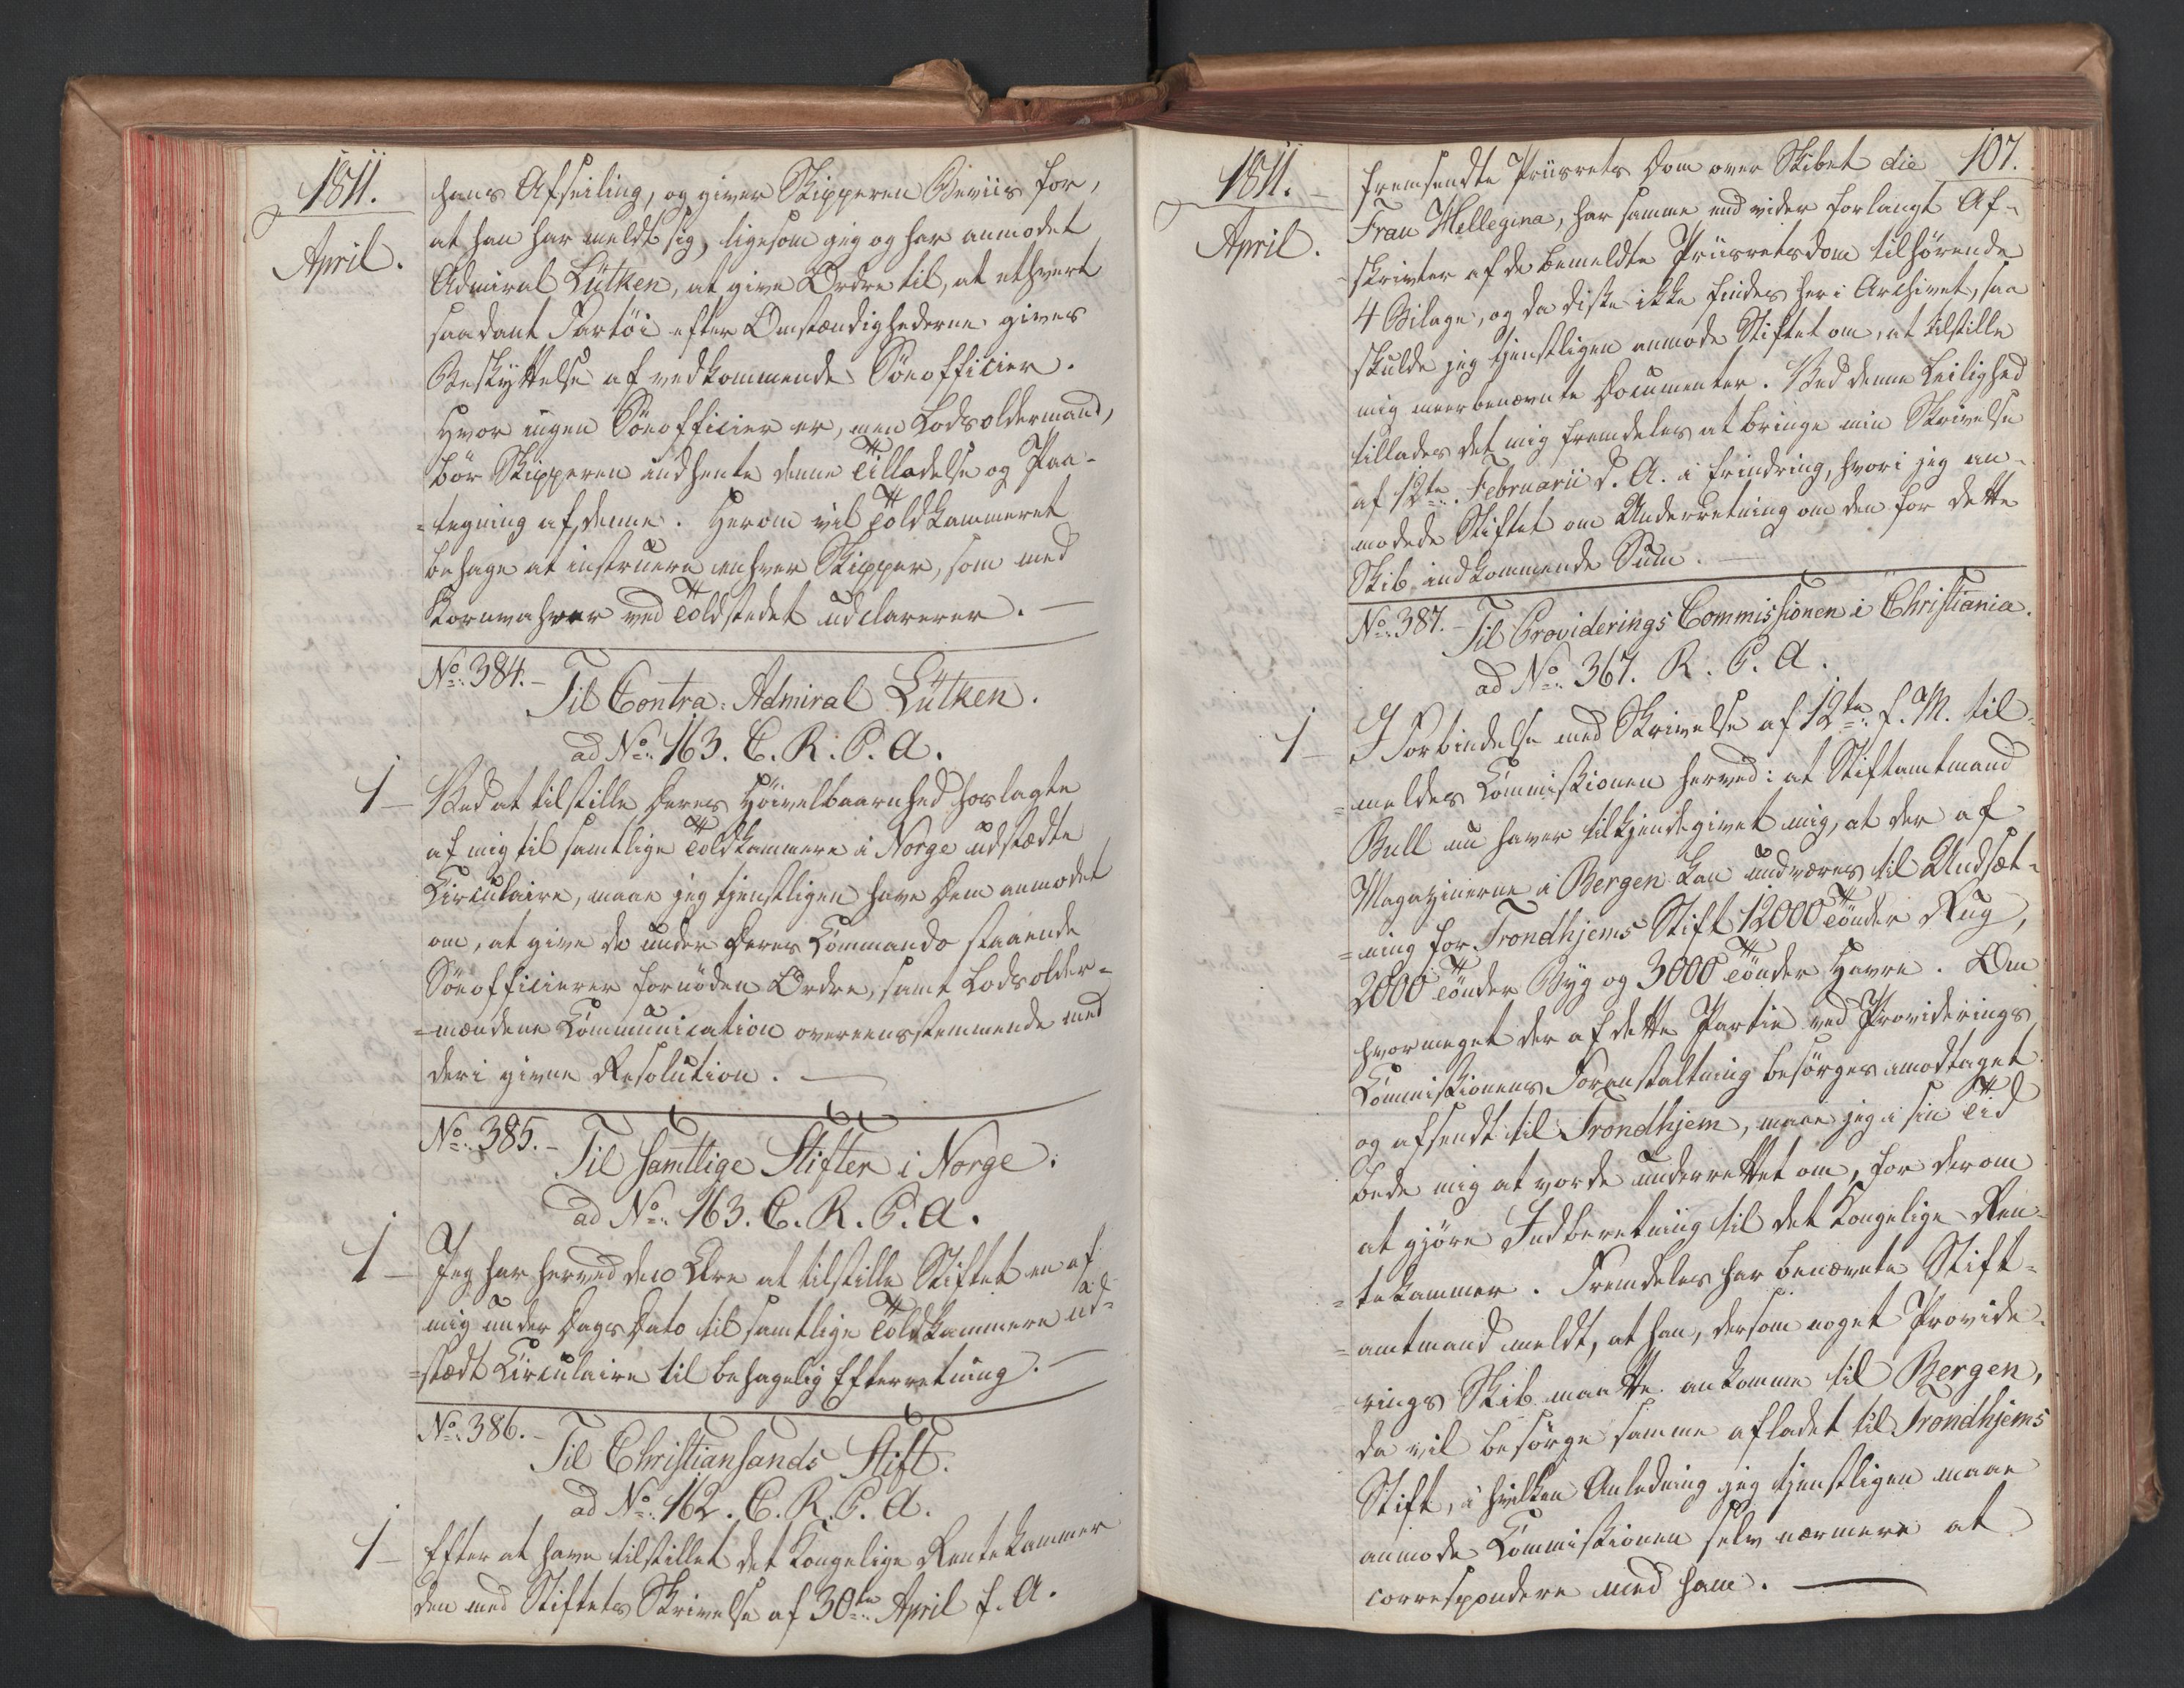 1811.
April.
hans Afseiling, og giver Skipperen Beviis for,
at han har meldt sig, ligesom jeg og har anmodet
Admiral Lütken, at give Ordre til, at ethvert
saadant Fartöi efter Omstændighederne gives
Beskyttelse af vedkommende Söeofficier.
Hvor ingen Söeofficier er, men Lodsoldermand,
bör Skipperen indhente denne Tilladelse og Paa-
=tegning af denne. Herom vil Toldkammeret
behage at instruere enhver Skipper, som med
Kornvahrer ved Toldstedet udclarerer. —
No. 384. – Til Contra-Admiral Lütken.
ad No. 163. C. R. P. A.
1 – Ved at tilstille Deres Höivelbaarnhed hoslagte
af mig til samtlige Toldkammere i Norge udstædte
Circulaire, maae jeg tjenstligen have Dem anmodet
om, at give de under Deres Commando staaende
Söeofficierer fornöden Ordre, samt Lodsolder-
=mændene Communication overeensstemmende med
deri givne Resolution. —
No. 385. – Til samtlige Stifter i Norge.
ad No. 163. C. R. P. A.
1 – Jeg har herved den Ære at tilstille Stiftet en af
mig under Dags Dato til samtlige Toldkammere ud-
=stædt Circulaire til behagelig Efterretning. —
No. 386. – Til Christiansands Stift.
ad No. 162. C. R. P. A.
1 – Efter at have tilstillet det Kongelige Rentekammer
den med Stiftets Skrivelse af 30te April f. A.
1811.
April.
107.
fremsendte Priisrets Dom over Skibet die
Frau Hellegina, har samme end vider forlangt Af-
=skrivter af de bemeldte Priisretsdom tilhørende
4 Bilage, og da diske ikke findes her i Archivet, saa
skulde jeg tjenstligen anmode Stiftet om, at tilstille
mig meerbenævnte Documenter. Ved denne Leilighed
tillades det mig fremdeles at bringe min Skrivelse
af 12te Februarii d. A. i Erindring, hvori jeg an-
modede Stiftet om Underretning om den for dette
Skib indkommende Sum. —
No. 387. – Til Providerings Commissionen i Christiania.
ad No. 367. R. P. A.
1 – I Forbindelse med Skrivelse af 12te f. M. til-
=meldes Commissionen herved: at Stiftamtmand
Bull nu haver tilkjendegivet mig, at der af
Magazinerne i Bergen kan undværes til Undsæt-
=ning for Trondhjems Stift 12000 Tönder Rug,
2000 Tönder Byg og 3000 Tönder Havre. Om
hvormeget der af dette Partie ved Providerings
Commissionens Foranstaltning besörges imodtaget
og afsendt til Trondhjem, maae jeg i sin Tid
bede mig at vorde underrettet om, for derom
at gjöre Indberetning til det Kongelige Ren-
=tekammer. Fremdeles har benævnte Stift-
=amtmand meldt, at han, dersom noget Provide-
=rings Skib maatte ankomme til Bergen,
da vil besörge samme afladet til Trondhjems
Stift, i hvilken Anledning jeg tjenstligen maae
anmode Commissionen selv nærmere at
correspondere med ham. —